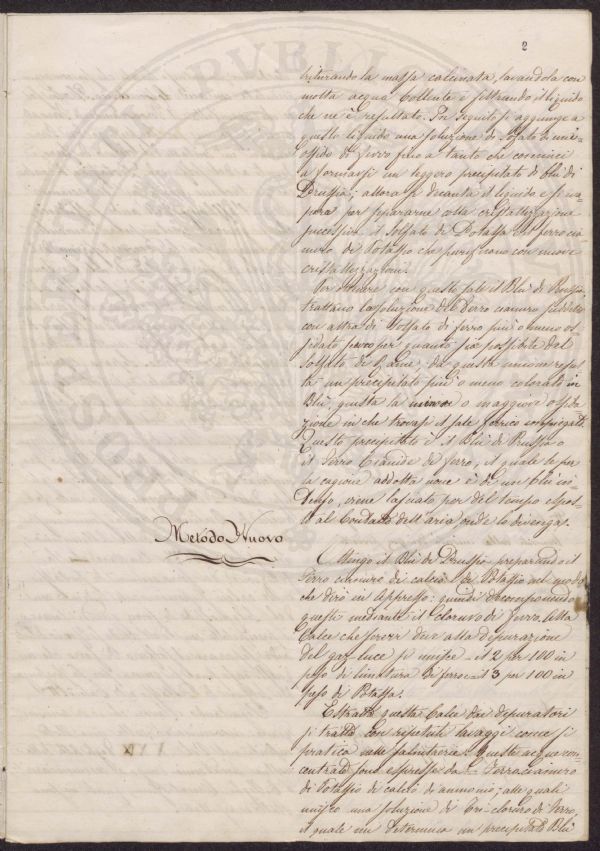 2
triturando la massa calcinata, lavandola con
molta acqua bollente e filtrando il liquido
che ne è resultato. In seguito si aggiunge a
questo liquido una soluzione di Solfato di
ossido di ferro fino a tanto che cominci
a formarsi un leggero precipitato di blù di
Prussia; allora si decanta il liquido e si eva-
pora per separarne colla cristallizzazione
il Solfato di Potassa dal ferrocia
nuro di Potassio che purificano con nuove
cristallizzazioni.
Per ottenere con questo sale il Blù di Prussia
trattano la soluzione del Ferro cianuro
con altra di Solfato di ferro più o meno os
sidato per quanto sia possibile dal
Solfato di Rame, da questa unione resul
ta un precipitato più o meno colorato in
Blù, giusta la minore o maggiore ossida-
zione in che trovasi il sale ferrico
Questo precipitato è il Blù di Prussia o
il Ferro Cianide di ferro, il quale se per
la cagione addotta non è di un blù in
tenso, viene lasciato per del tempo espos-
to al Contatto dell'aria onde lo divenga.
Metodo Nuovo
Ottengo il Blù di Prussia preparando il
Ferro cianuro di calcio di Potassio nel modo
che dirò in Appresso: quindi decomponendo
questi mediante il cloruro di ferro. Alla
Calce che servir deve alla depurazione
del gaz-luce si unisce il 2 per 100 in
peso di limatura di ferro e il 3 per 100 in
peso di Potassa.
Estratta questa Calce dai depuratori
si tratta con ripetuti lavaggi come si
pratica nelle salnitrerie. Queste acque con-
centrate sono espresse da Ferrocianuro
di Potassio di calcio di ammonio; alle quali
unisco una soluzione di Tri-cloruro di Ferro,
il quale mi determina un precipitato Blù